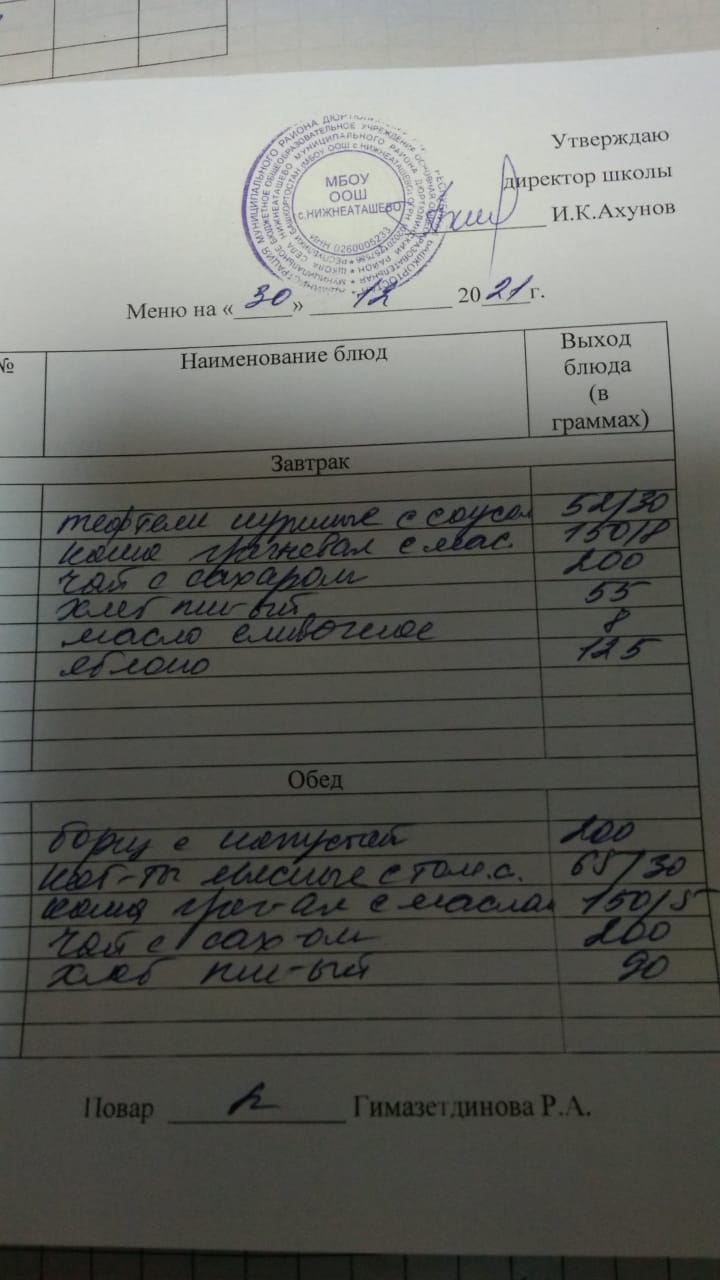 Утверждаю
МБОУ
ООШ
с.НИЖНЕАТАШЕВО
ИНН 0260005233
директор школы
И.К.Ахунов
Меню на «30» 12 2021г.
№ Наименование блюд Выход блюда (в граммах)
Завтрак
тефтели куриные с соусом 52/30
каша гречневая с мас. 150/8
чай с сахаром 200
хлеб пш-ый 55
масло сливочное 8
яблоко 125
Обед
борщ с капустай 200
кот-ты мясные с том.с. 65/30
каша греч-ая с маслом 150/5
чай с сах-ом 200
хлеб пш-ый 90
Повар Гимазетдинова Р.А.